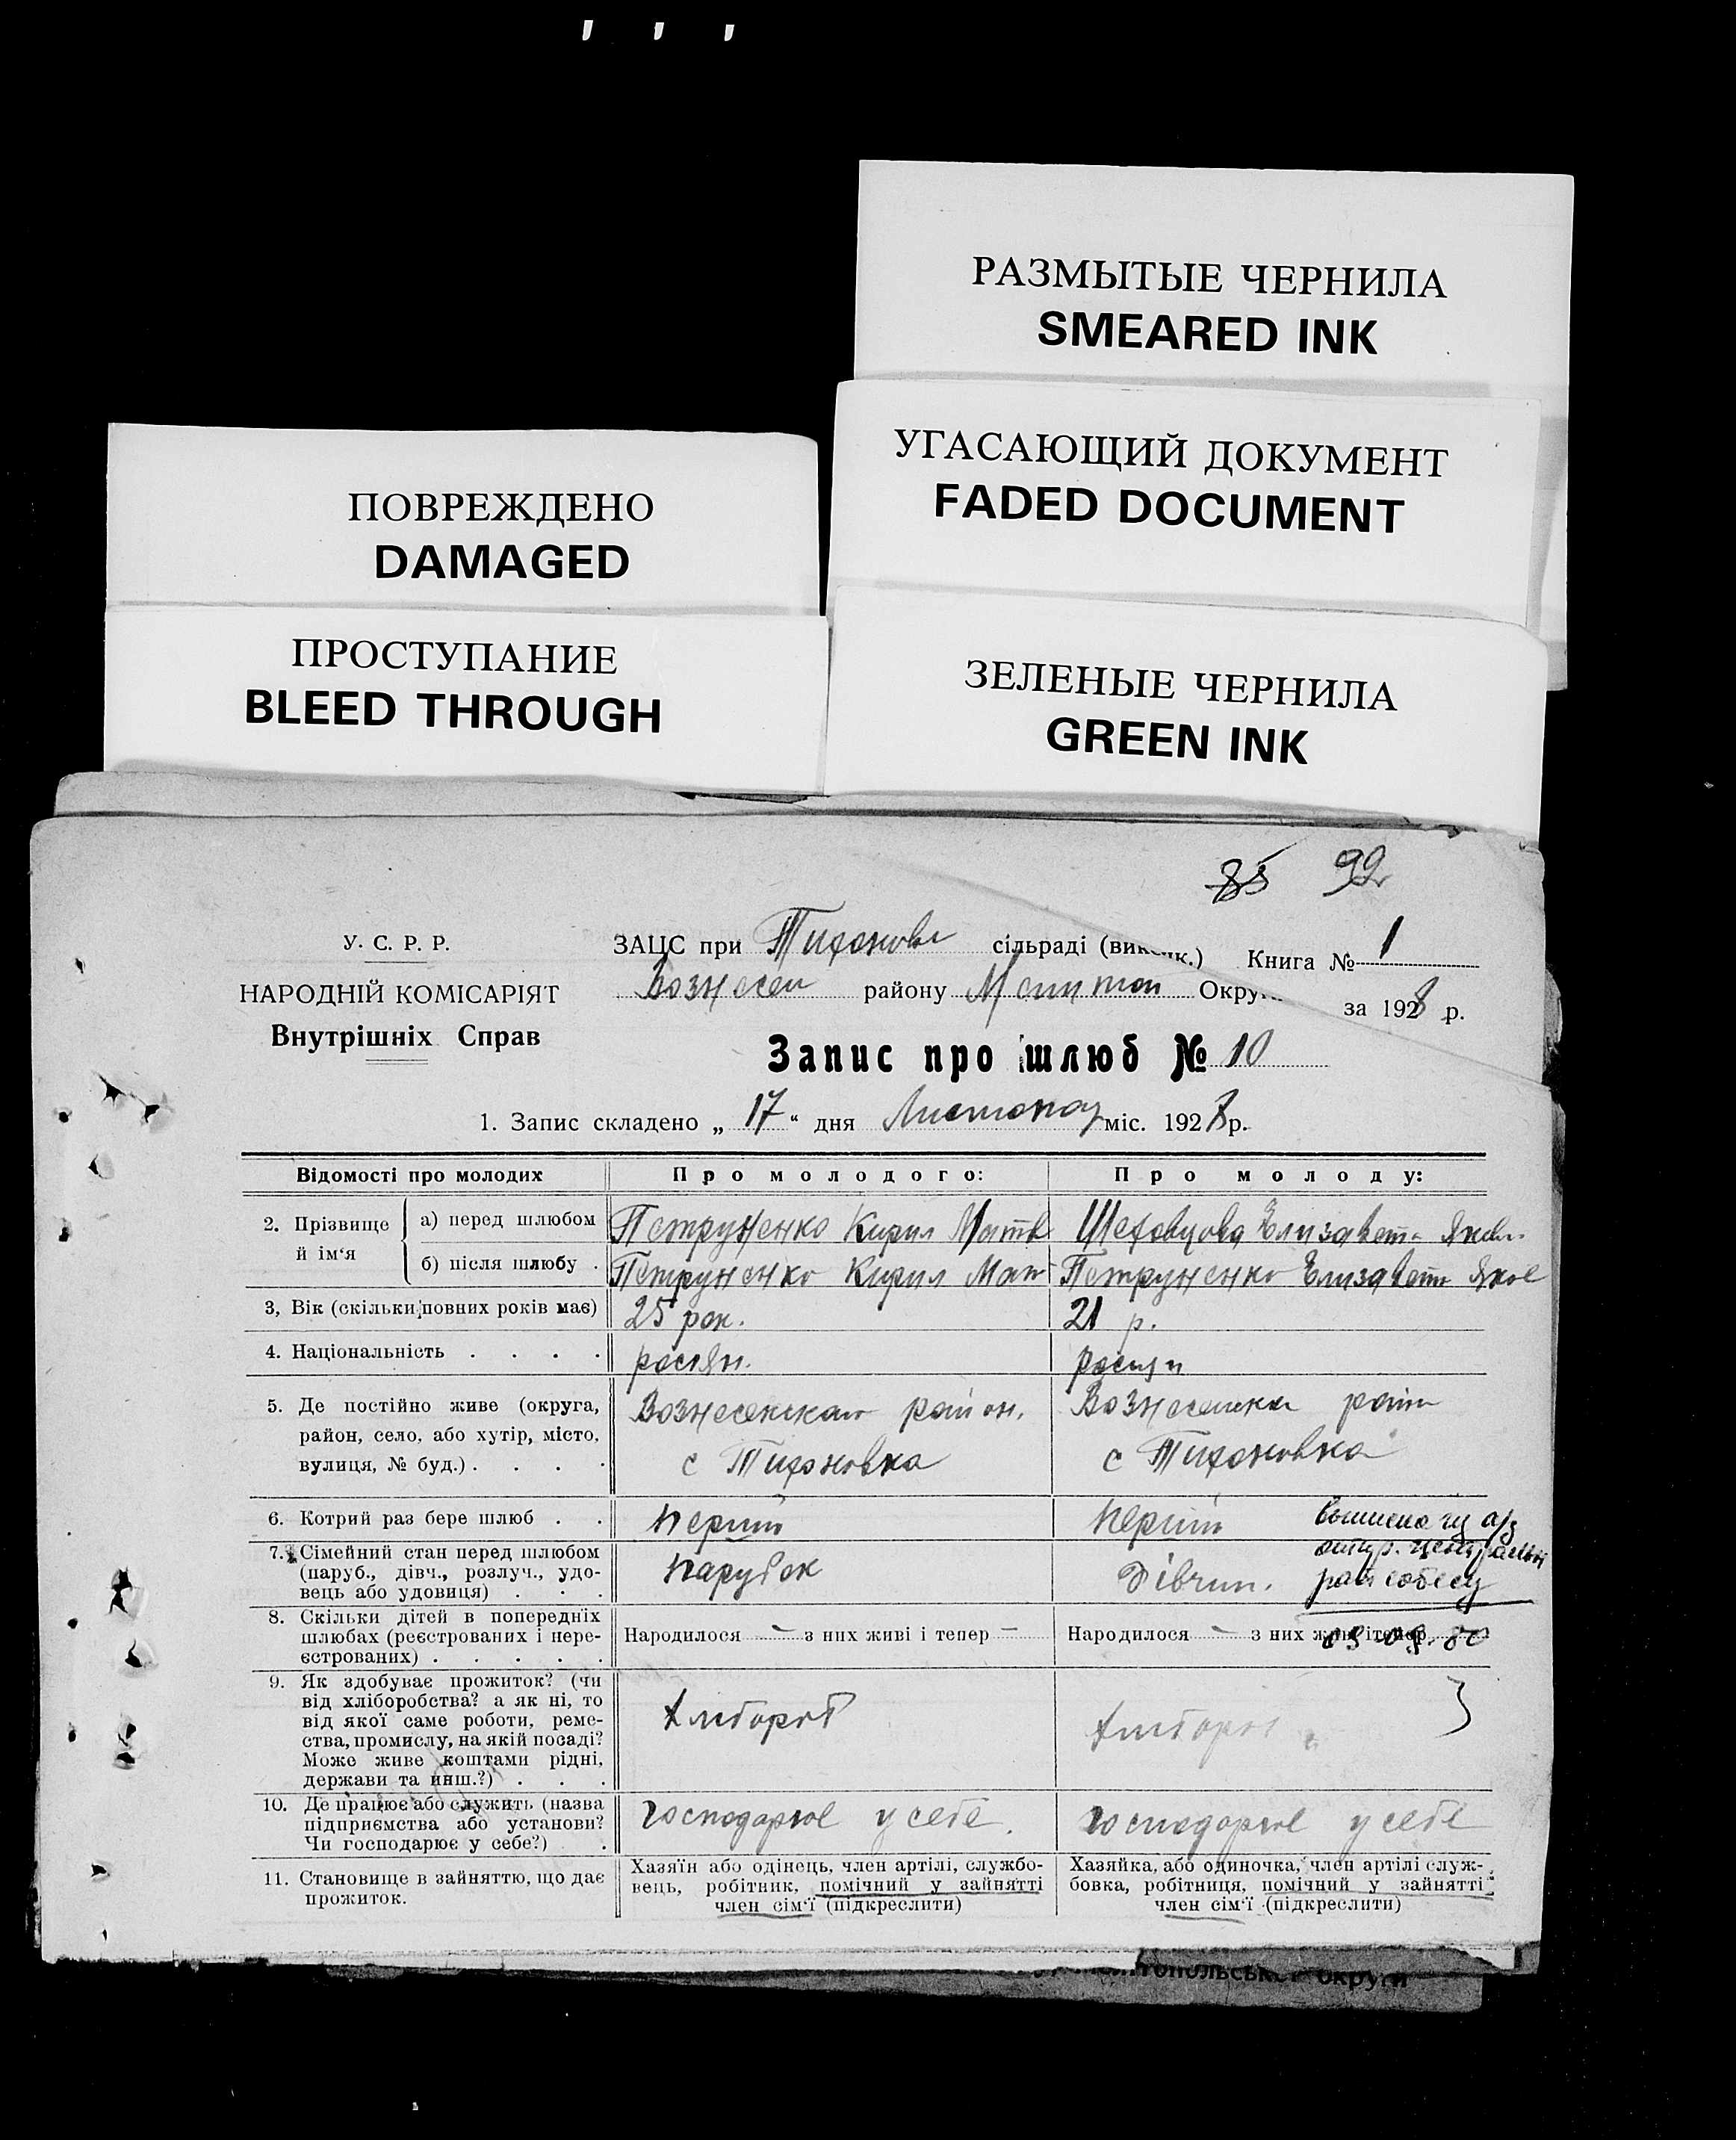 РАЗМЫТЫЕ ЧЕРНИЛА
SMEARED INK
УГАСАЮЩИЙ ДОКУМЕНТ
FADED DOCUMENT
ПОВРЕЖДЕНО
DAMAGED
ПРОСТУПАНИЕ
BLEED THROUGH
ЗЕЛЕНЫЕ ЧЕРНИЛА
GREEN INK
85 99
У. С. Р. Р.
НАРОДНІЙ КОМІСАРІЯТ
Внутрішніх Справ
ЗАЦС при Тихонов сільраді Книга № 1
Вознесен району Округи за 1928 р.
Запис про шлюб № 10
1. Запис складено „ 17 “ дня Листопад міс. 1928 р.
Відомості про молодих Про молодого: Про молоду:
2. Прізвище й ім‘я
а) перед шлюбом Петруненко Кирил Матв Шеховцова Елизавета Яковл.
б) після шлюбу . Петруненко Кирил Мат Петруненко Елизавета Яков
3, Вік (скільки повних років має) 25 рок. 21 р.
4. Національність . . . . росіян. росіян
5. Де постійно живе (округа,
район, село, або хутір, місто,
вулиця, № буд.) . . . .
район.
с Тихоновка
район
с Тихоновка
6. Котрий раз бере шлюб . . перший перший
7. Сімейний стан перед шлюбом
(паруб., дівч., розлуч., удо-
вець або удовиця) . . .
парубок
Дівчин.
райсобесу
8. Скільки дітей в попередніх
шлюбах (реєстрованих і нере-
єстрованих) . . . . .
Народилося — з них живі і тепер —
Народилося — з них живі і тепер
9. Як здобуває прожиток? (чи
від хліборобства? а як ні, то
від якої саме роботи, реме-
ства, промислу, на якій посаді?
Може живе коштами рідні,
держави та инш.?) . . .
хлібороб
хлібороб
10. Де працює або служить (назва
підприємства або установи?
Чи господарює у себе?) .
господарює у себе.
господарює у себе
11. Становище в зайняттю, що дає
прожиток.
Хазяїн або одінець, член артілі, службо-
вець, робітник, помічний у зайнятті
член сім‘ї (підкреслити)
Хазяйка, або одиночка, член артілі служ-
бовка, робітниця, помічний у зайнятті
член сім‘ї (підкреслити)
округи